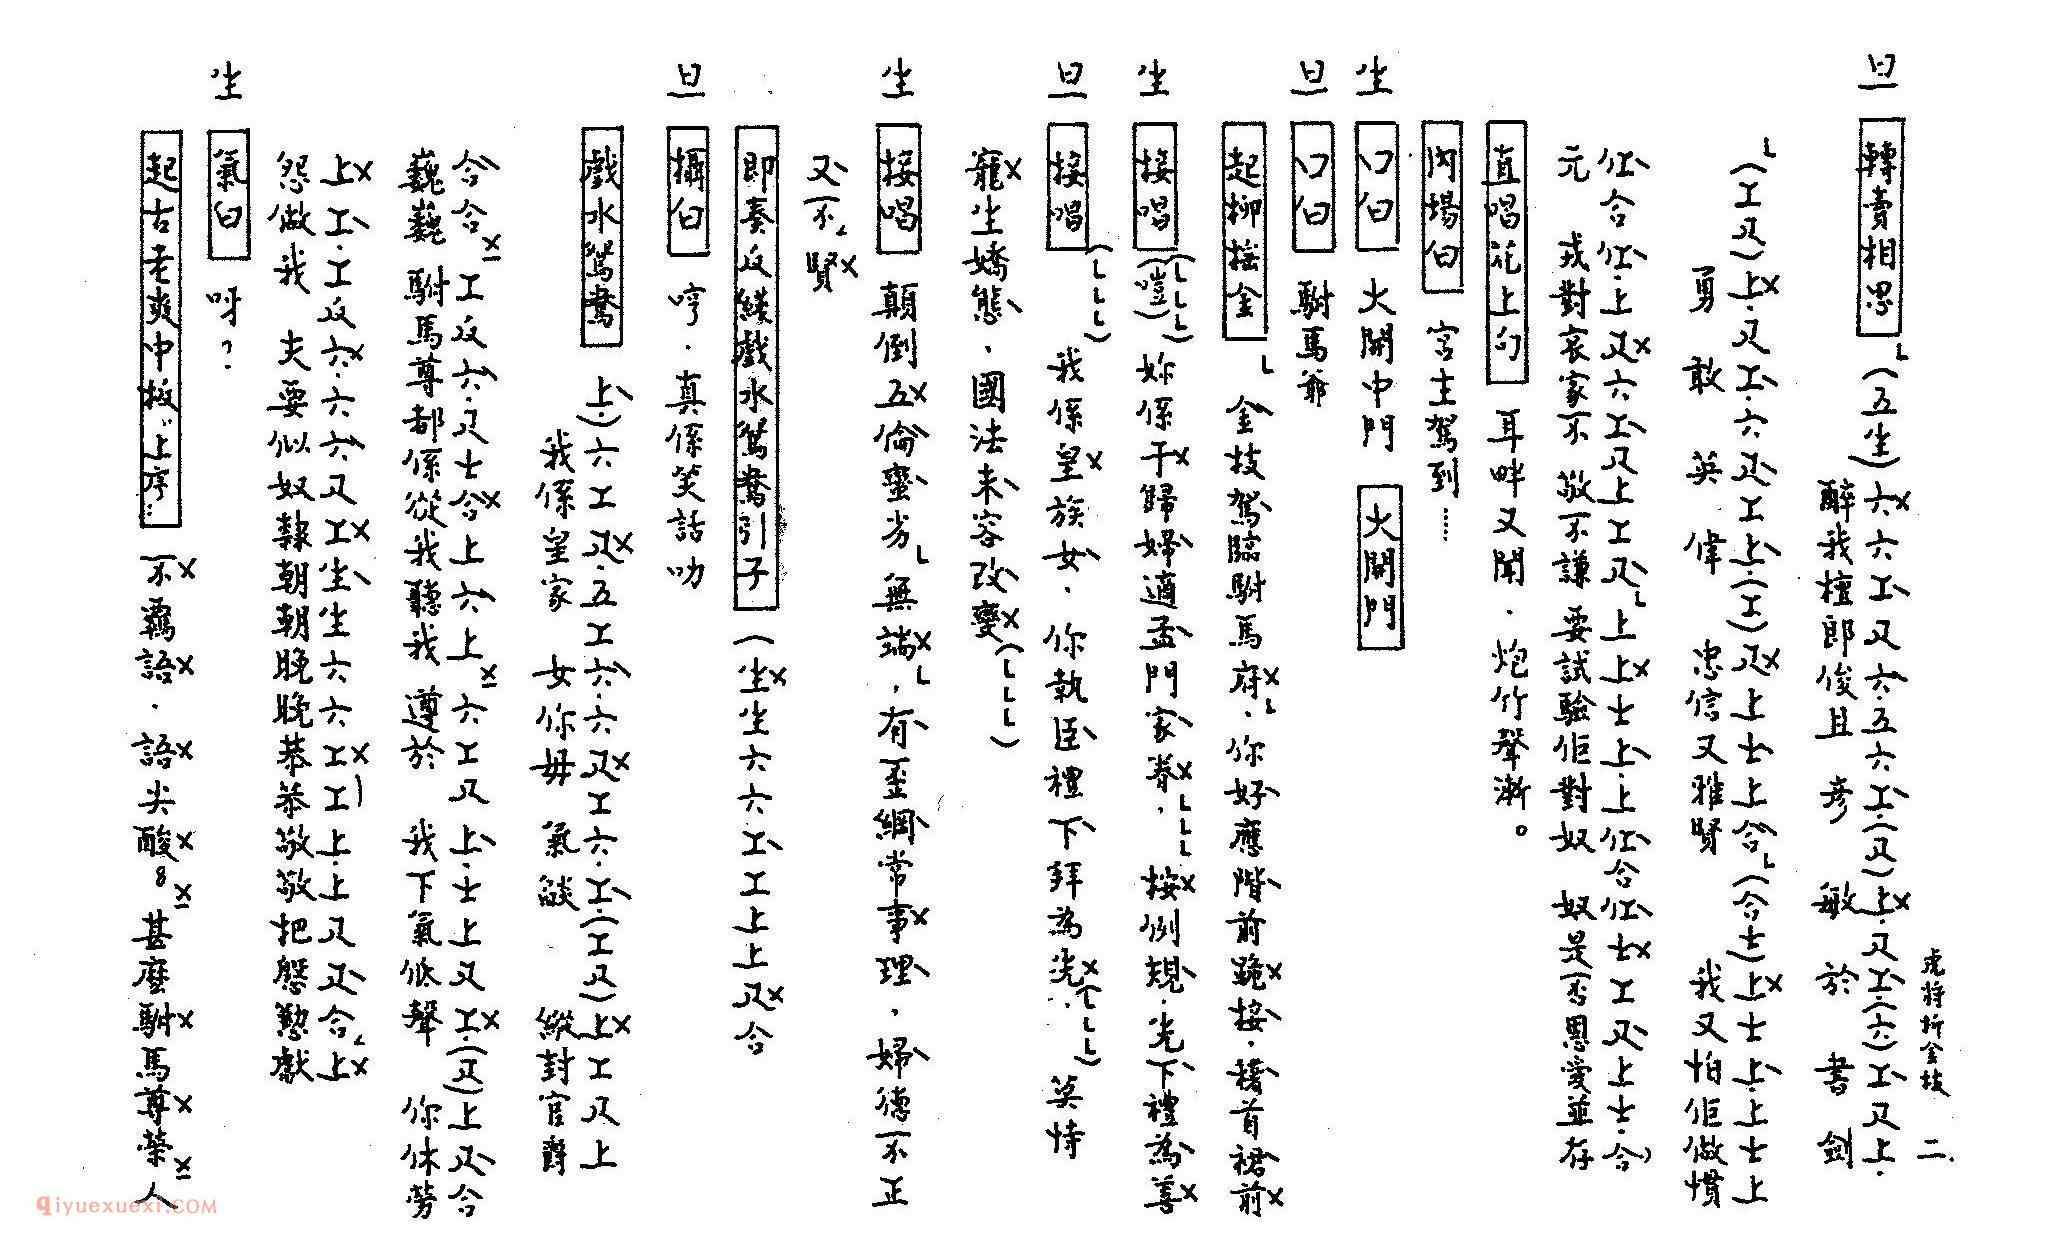 虎將折金枝 二.
旦 轉賣相思 (五生)六六工尺六.五六工.(尺)上.尺工.(六)工尺上.
醉我檀郎俊且 彥 敏 於 書 劍
(工尺)上.尺工.六尺工上.(工)尺上士上合(合士)上士上.上士上
勇 敢 英 偉 忠信又雅賢 我又怕佢做慣
仩合仩.上尺六工尺上工尺上上士上.上仩合仩士工尺上士.合
元 戎對哀家不敬不謙要試驗佢對奴 奴是否恩愛並存
直唱花上句 耳畔又聞.炮竹聲漸。
內場白 宮主駕到……
生 口白 大開中門 大開門
旦 口白 駙馬爺
起柳搖金 金枝駕臨駙馬府.你好應階前跪接.稽首裙前
生 接唱 (嗌)妳係于歸婦適孟門家眷.按例規.先下禮為善
旦 接唱 我係皇族女.你執臣禮下拜為先.莫恃
寵生嬌態.國法未容改變
生 接唱 顛倒五倫蠻劣無端,有歪綱常事理,婦德不正
又不賢
即奏反綫戲水鴛鴦引子 (生生六六工工上上尺合
旦 攝白 哼.真係笑話叻
戲水鴛鴦 上.)六工尺.五工六.六尺工六.工.(工尺)上工尺上
我係皇家 女你毋 氣燄 縱封官爵
合合工反六.尺士合上六上六工尺上.士上尺工.(尺)上尺合
巍巍 駙馬尊都係從我聽我 遵於 我下氣低聲 你休勞
上工.工反六.六六尺工生生六六工工上.上尺尺合上
怨做我 夫要似奴隸朝朝晚晚恭恭敬敬把慇懃獻
生 氣白 呀?
起古老爽中板"上序… 不羈語.語尖酸8甚麼駙馬尊榮人
qiyuexuexi.COM